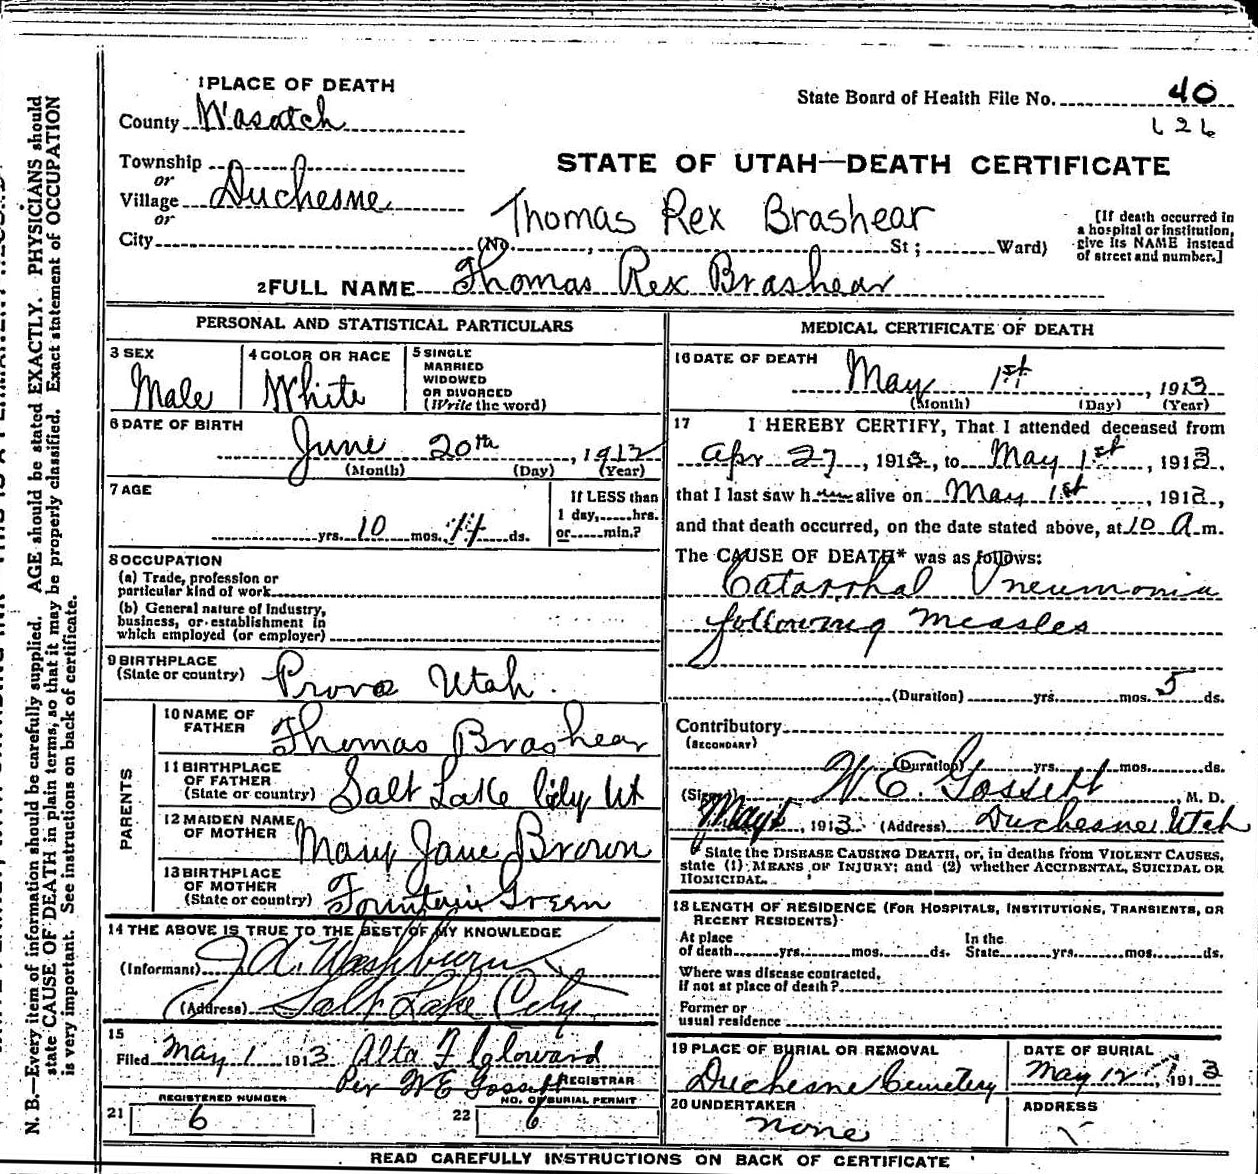 1 PLACE OF DEATH
County Wasatch
Township
or
Village Duchesne
or
City (No. , St ; Ward)
State Board of Health File No. 40
626
STATE OF UTAH—DEATH CERTIFICATE
Thomas Rex Brashear
[If death occurred in
a hospital or institution,
give its NAME instead
of street and number.]
2 FULL NAME Thomas Rex Brashear
PERSONAL AND STATISTICAL PARTICULARS
3 SEX
Male
4 COLOR OR RACE
White
5 SINGLE
MARRIED
WIDOWED
OR DIVORCED
(Write the word)
6 DATE OF BIRTH
June 20th , 1912
(Month) (Day) (Year)
7 AGE
yrs. 10 mos. 11 ds.
If LESS than
1 day, hrs.
or min.?
8 OCCUPATION
(a) Trade, profession or
particular kind of work
(b) General nature of Industry,
business, or establishment in
which employed (or employer)
9 BIRTHPLACE
(State or country) Provo Utah.
PARENTS
10 NAME OF
FATHER Thomas Brashear
11 BIRTHPLACE
OF FATHER
(State or country) Salt Lake City Ut
12 MAIDEN NAME
OF MOTHER Mary Jane Brown
13 BIRTHPLACE
OF MOTHER
(State or country) Fountain Green
14 THE ABOVE IS TRUE TO THE BEST OF MY KNOWLEDGE
(Informant) J A. Washburn
(Address) Salt Lake City
15
Filed May 1 1913 Alta F Cloward
Per W E Gossett REGISTRAR
REGISTERED NUMBER
21 6
NO. OF BURIAL PERMIT
22 6
MEDICAL CERTIFICATE OF DEATH
16 DATE OF DEATH
May 1st , 1913
(Month) (Day) (Year)
17 I HEREBY CERTIFY, That I attended deceased from
Apr 27 , 1913, to May 1st , 1913,
that I last saw h alive on May 1st , 1913,
and that death occurred, on the date stated above, at 10 A m.
The CAUSE OF DEATH* was as follows:
Catarrhal Pneumonia
following measles
(Duration) yrs. mos. 5 ds.
Contributory
(SECONDARY)
(Duration) yrs. mos. ds.
(Signed) W. E. Gossett , M. D.
May 1 , 1913 (Address) Duchesne Utah
*State the DISEASE CAUSING DEATH, or, in deaths from VIOLENT CAUSES,
state (1) MEANS OF INJURY; and (2) whether ACCIDENTAL, SUICIDAL OR
HOMICIDAL.
18 LENGTH OF RESIDENCE (FOR HOSPITALS, INSTITUTIONS, TRANSIENTS, OR
RECENT RESIDENTS)
At place
of death yrs. mos. ds.
In the
State yrs. mos. ds.
Where was disease contracted,
if not at place of death?
Former or
usual residence
19 PLACE OF BURIAL OR REMOVAL
Duchesne Cemetery
DATE OF BURIAL
May 1913
20 UNDERTAKER
none
ADDRESS
READ CAREFULLY INSTRUCTIONS ON BACK OF CERTIFICATE
N. B.—Every item of information should be carefully supplied. AGE should be stated EXACTLY. PHYSICIANS should
state CAUSE OF DEATH in plain terms, so that it may be properly classified. Exact statement of OCCUPATION
is very important. See instructions on back of certificate.